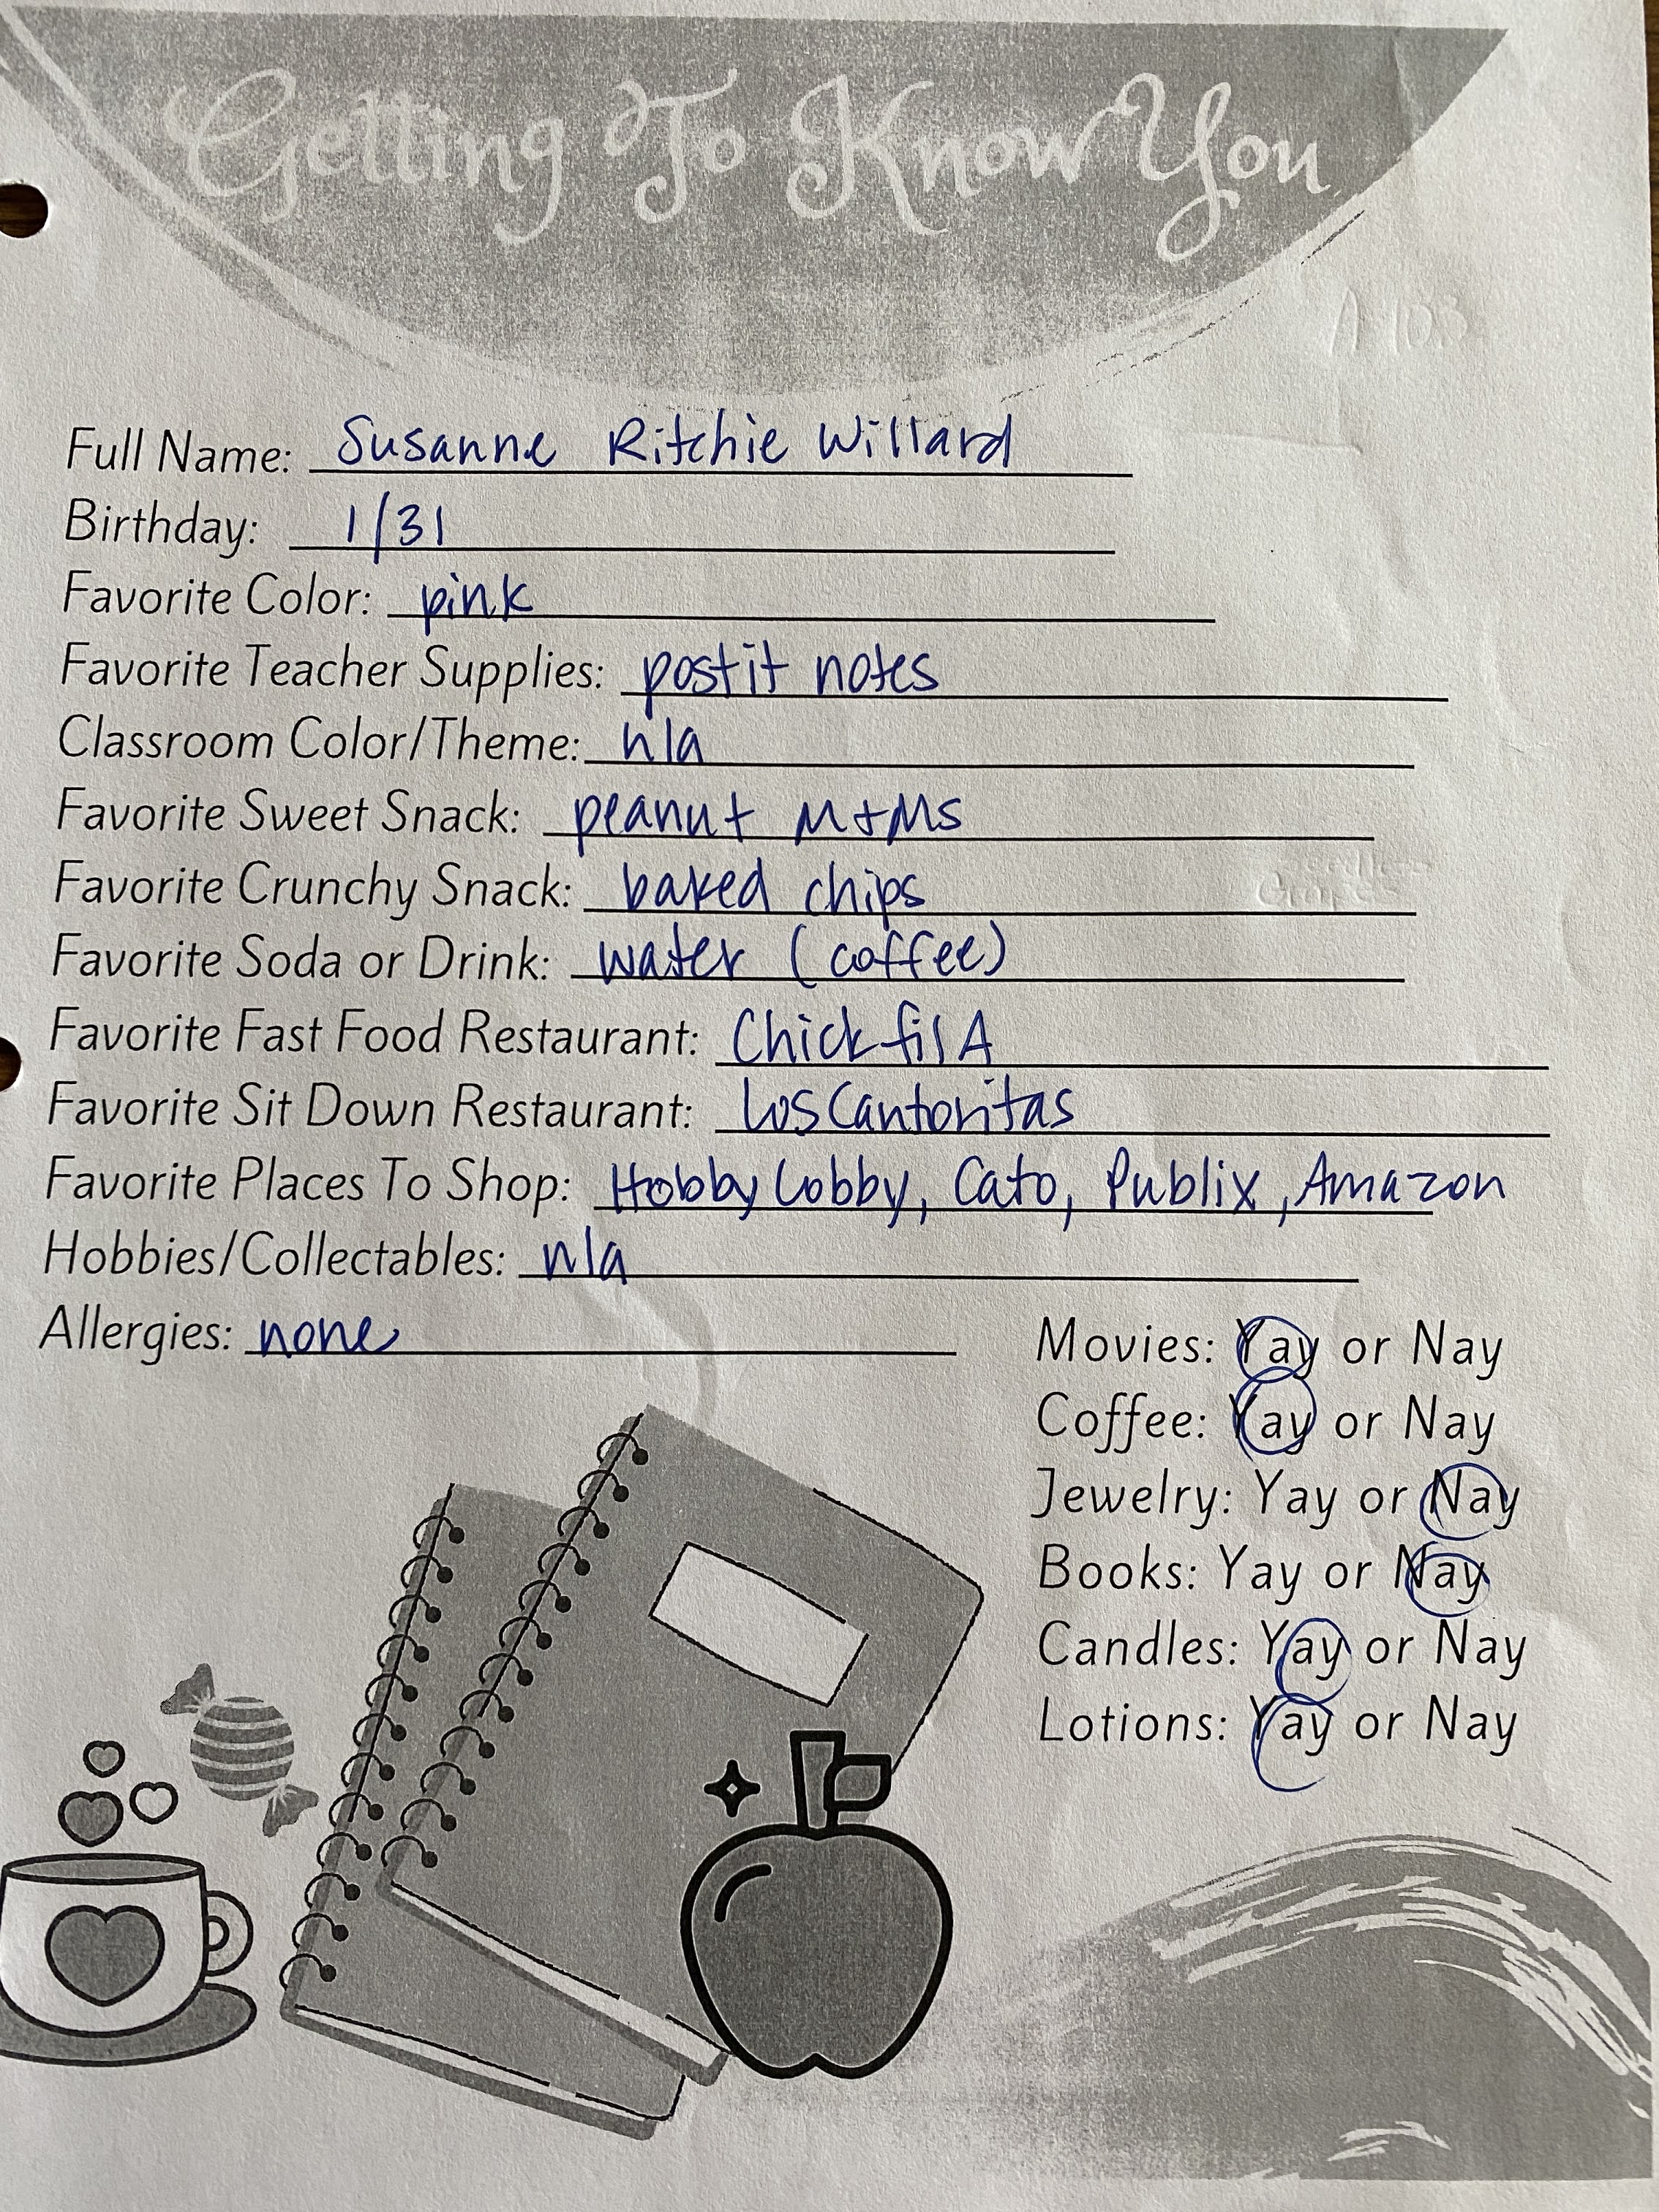 Getting To Know You
A 103
Full Name: Susanne Ritchie Willard
Birthday: 1/31
Favorite Color: pink
Favorite Teacher Supplies: post it notes
Classroom Color/Theme: n/a
Favorite Sweet Snack: peanut M+Ms
Favorite Crunchy Snack: baked chips
Favorite Soda or Drink: water (coffee)
Favorite Fast Food Restaurant: Chick fil A
Favorite Sit Down Restaurant: Los Cantoritas
Favorite Places To Shop: Hobby Lobby, Cato, Publix, Amazon
Hobbies/Collectables: n/a
Allergies: none
Movies: Yay or Nay
Coffee: Yay or Nay
Jewelry: Yay or Nay
Books: Yay or Nay
Candles: Yay or Nay
Lotions: Yay or Nay